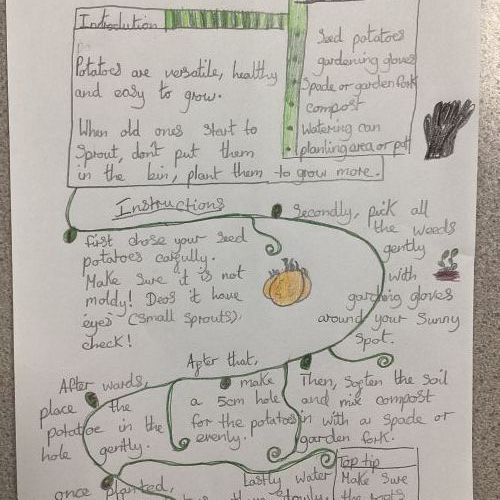 Introduction
Potatoes are versatile, healthy
and easy to grow.
When old ones start to
Sprout, don't put them
in the bin, plant them to grow more.
Seed potatoes
gardening gloves
Spade or garden fork
compost
Watering can
planting area or pot
Instructions
first chose your seed
potatoes carfully.
Make sure it is not
moldy! Deos it have
'eyes' (small sprouts).
check!
Secondly, pick all
the weeds
gently
with
gardening gloves
around your sunny
spot.
Then, soften the soil
and mix compost
in with a spade or
garden fork.
After that,
make
a 5cm hole
for the potatoes
evenly.
After wards,
place the
potatoe in the
hole gently.
once planted,
Lastly water
Top tip
Make sure